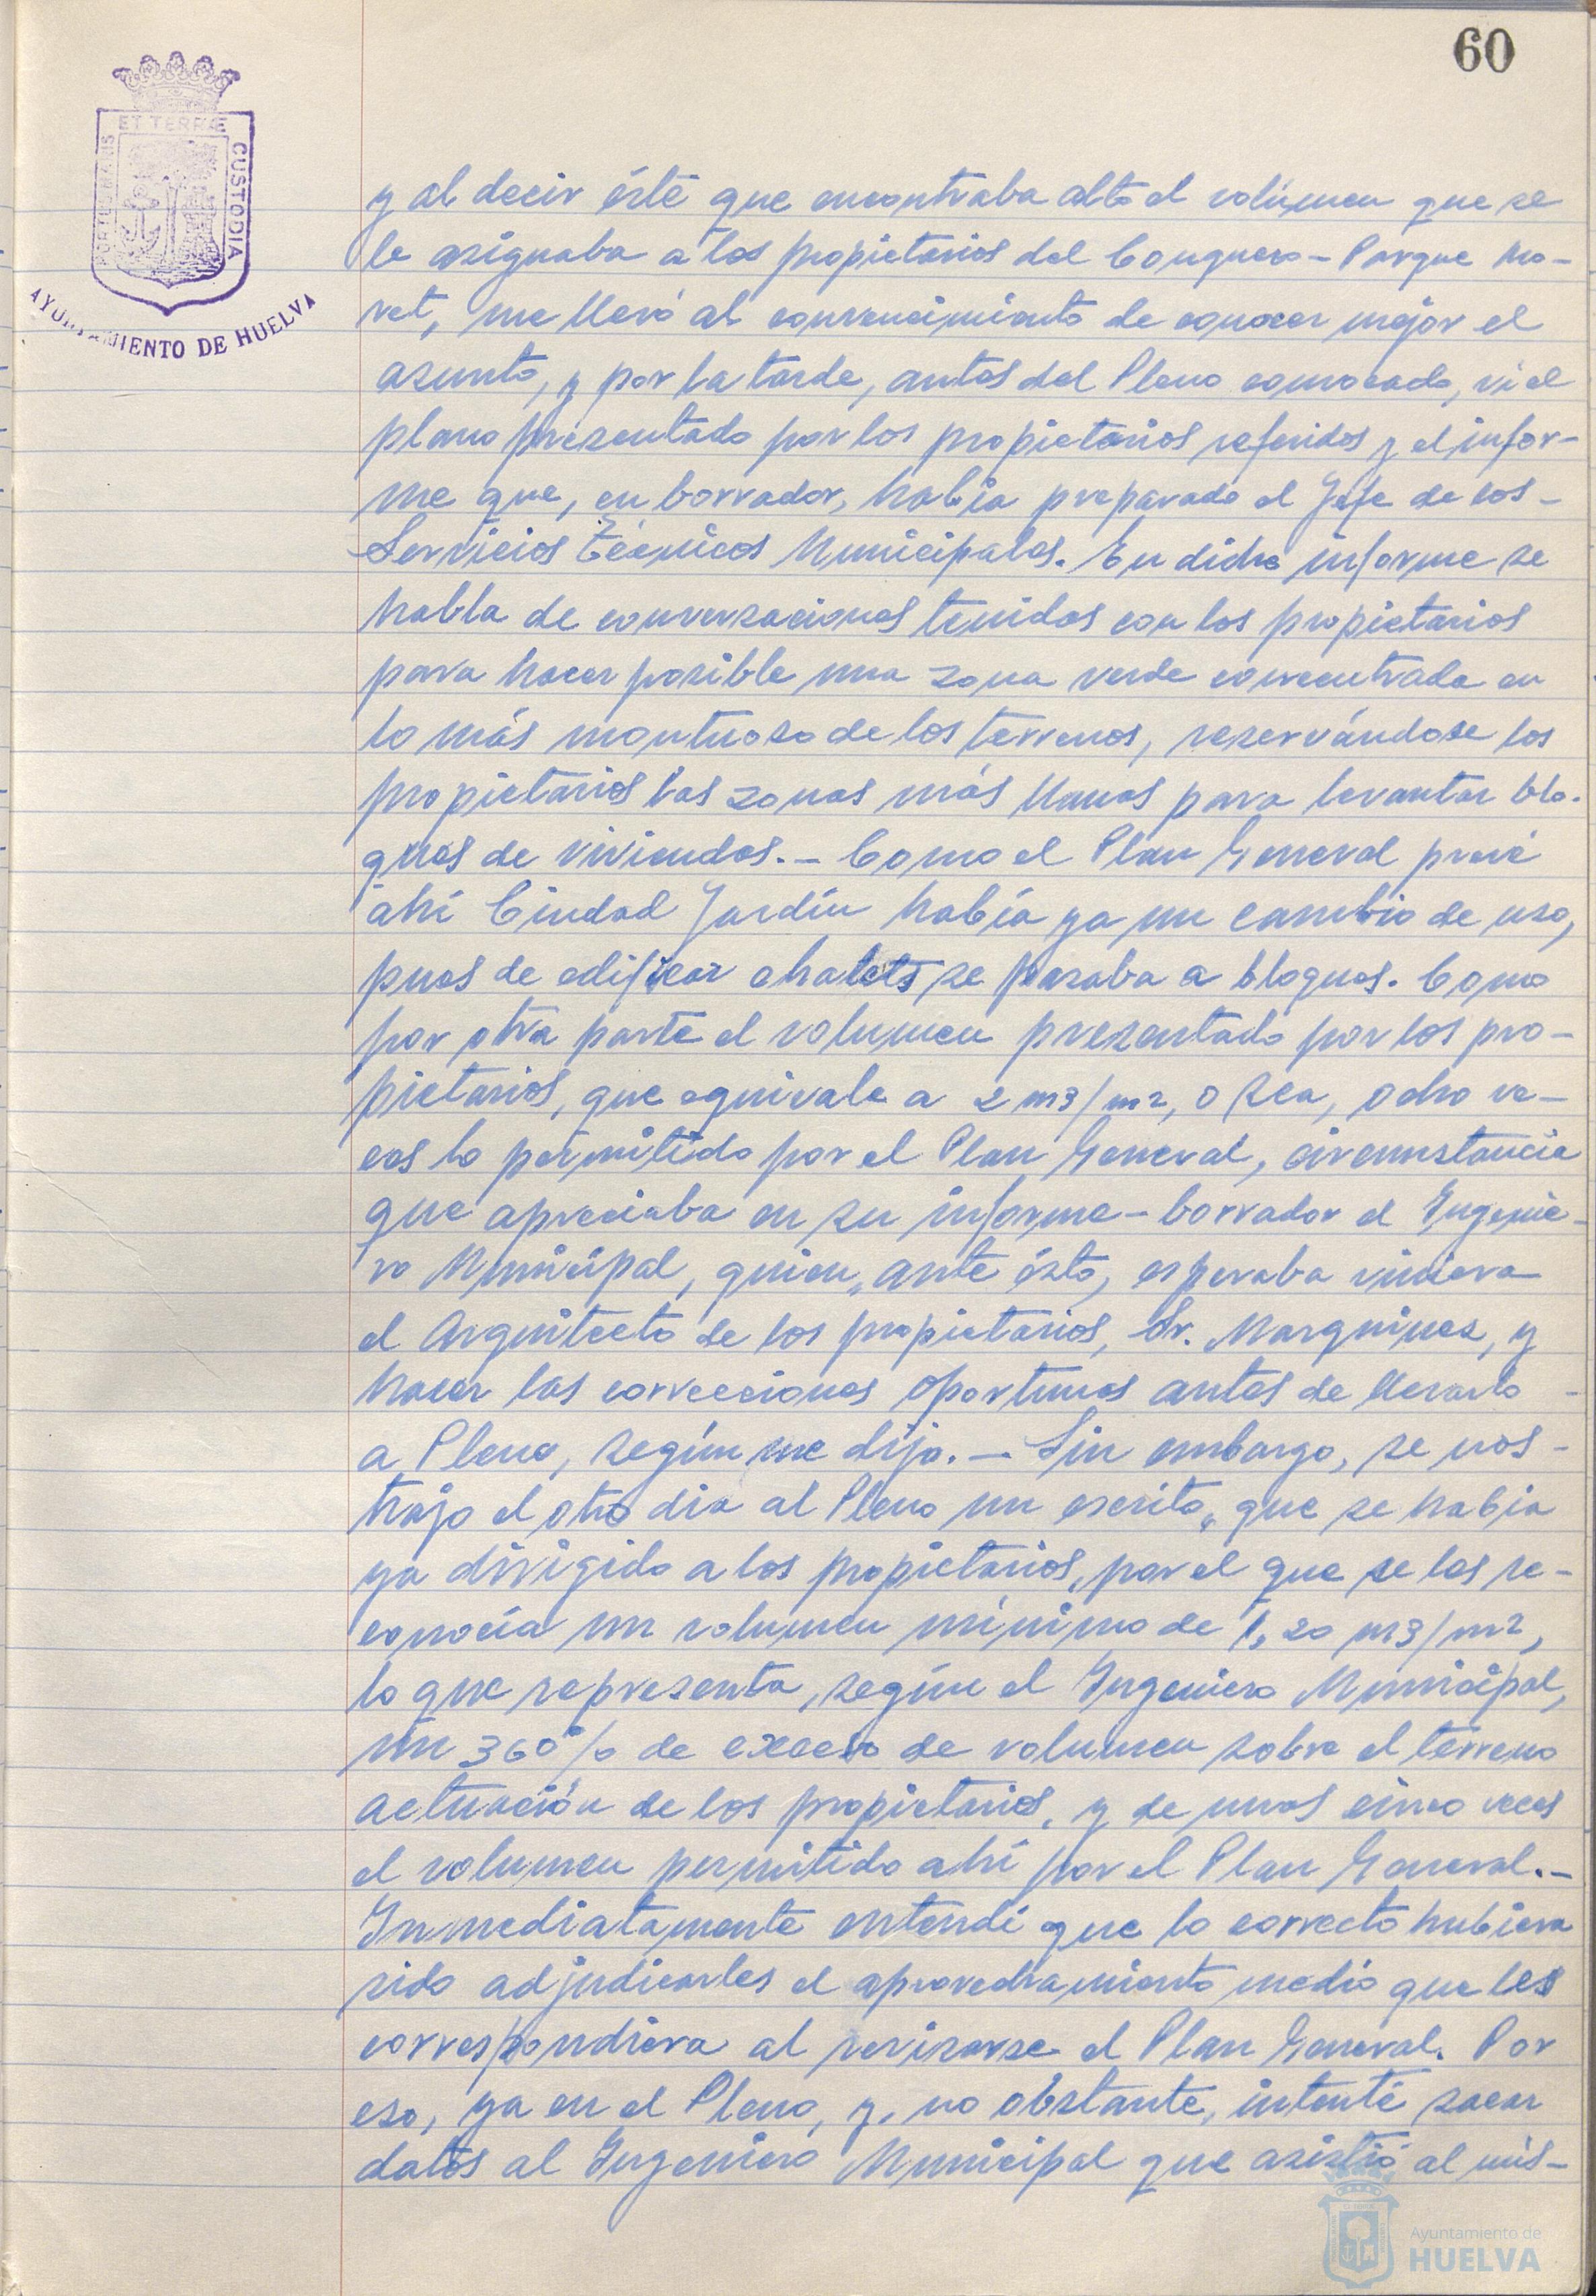 60
ET TERRÆ
PORTUS MARIS
CUSTODIA
AYUNTAMIENTO DE HUELVA
y al decir éste que encontraba alto el volúmen que se
le asignaba a los propietarios del Conquero - Parque Mo-
ret, me llevó al convencimiento de conocer mejor el
asunto, y por la tarde, antes del Pleno convocado, vi el
plano presentado por los propietarios referidos y el infor-
me que, en borrador, había preparado el Jefe de los-
Servicios Técnicos Municipales. En dicho informe se
habla de conversaciones tenidas con los propietarios
para hacer posible una zona verde concentrada en
lo más montuoso de los terrenos, reservándose los
propietarios las zonas más llanas para levantar blo-
ques de viviendas. - Como el Plan General prevé
ahí Ciudad Jardín había ya un cambio de uso,
pues de edificar chalets se pasaba a bloques. Como
por otra parte el volumen presentado por los pro-
pietarios, que equivale a 2 m3/m2, o sea, ocho ve-
ces lo permitido por el Plan General, circunstancia
que apreciaba en su informe-borrador el Ingenie-
ro Municipal, quien, ante ésto, esperaba viniera
el Arquitecto de los propietarios, Sr. Marquines, y
hacer las correcciones oportunas antes de llevarlo -
a Pleno, según me dijo. - Sin embargo, se nos-
trajo el otro dia al Pleno un escrito, que se habia
ya dirigido a los propietarios, por el que se les re-
conocía un volumen mínimo de 1,20 m3/m2,
lo que representa, según el Ingeniero Municipal,
un 360% de exceso de volumen sobre el terreno
actuación de los propietarios, y de unas cinco veces
el volumen permitido ahí por el Plan General. -
Inmediatamente entendí que lo correcto hubiera
sido adjudicarles el aprovechamiento medio que les
correspondiera al revisarse el Plan General. Por
eso, ya en el Pleno, y, no obstante, intenté sacar
datos al Ingeniero Municipal que asistió al mis-
Ayuntamiento de
HUELVA